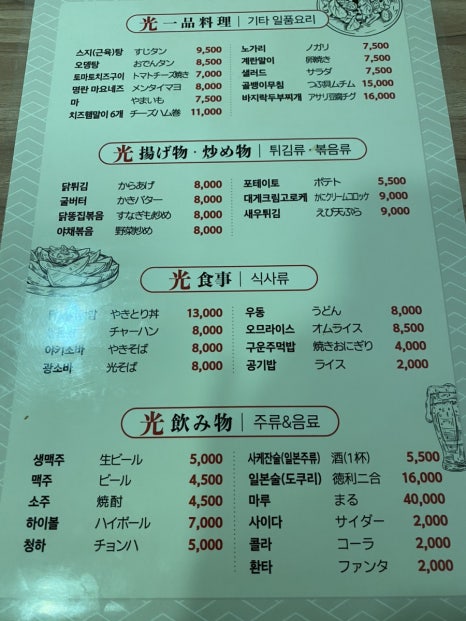 光 一品料理 | 기타 일품요리
스지(근육)탕 すじタン 9,500
오뎅탕 おでんタン 8,500
토마토치즈구이 トマトチーズ焼き 7,000
명란 마요네즈 メンタイマヨ 8,000
마 やまいも 7,500
치즈햄말이 6개 チーズハム巻 11,000
노가리 ノガリ 7,500
계란말이 卵焼き 7,500
샐러드 サラダ 7,500
골뱅이무침 つぶ貝ムチム 15,000
바지락두부찌개 アサリ豆腐チゲ 16,000
光 揚げ物・炒め物 | 튀김류・볶음류
닭튀김 からあげ 8,000
굴버터 かきバター 8,000
닭똥집볶음 すなぎも炒め 8,000
야채볶음 野菜炒め 8,000
포테이토 ポテト 5,500
대게크림고로케 かにクリームコロッケ 9,000
새우튀김 えび天ぷら 9,000
光 食事 | 식사류
やきとり丼 13,000
チャーハン 8,000
야키소바 やきそば 8,000
광소바 光そば 8,000
우동 うどん 8,000
오므라이스 オムライス 8,500
구운주먹밥 焼きおにぎり 4,000
공기밥 ライス 2,000
光 飲み物 | 주류&음료
생맥주 生ビール 5,000
맥주 ビール 4,500
소주 焼酎 4,500
하이볼 ハイボール 7,000
청하 チョンハ 5,000
사케잔술(일본주류) 酒(1杯) 5,500
일본술(도쿠리) 徳利二合 16,000
마루 まる 40,000
사이다 サイダー 2,000
콜라 コーラ 2,000
환타 ファンタ 2,000